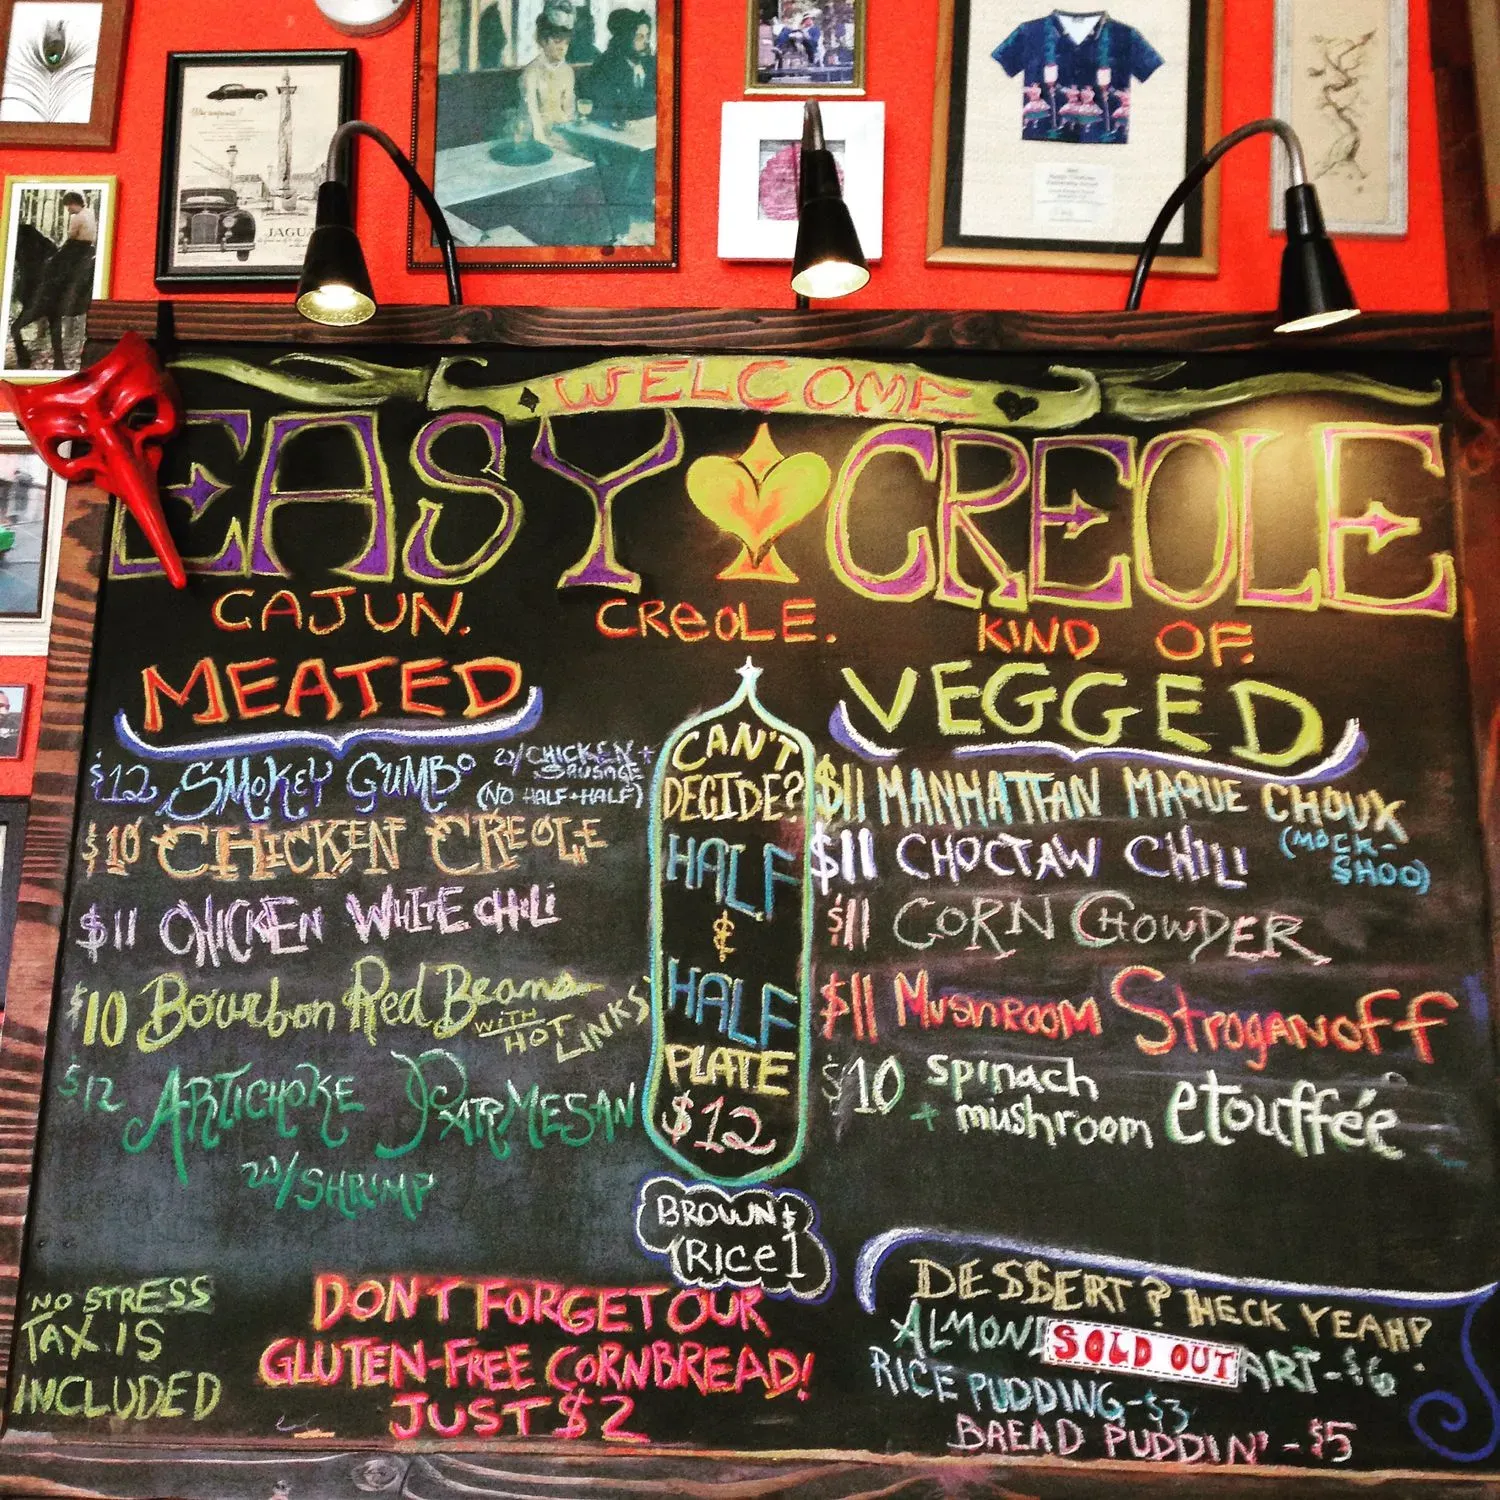 JAGUA
WELCOME
EASY CREOLE
CAJUN. CREOLE. KIND OF.
MEATED
$12 SMOKEY GUMBO w/CHICKEN + SAUSAGE
(NO HALF+HALF)
$10 CHICKEN CREOLE
$11 CHICKEN WHITE CHILI
$10 Bourbon Red Beans WITH HOT LINKS
$12 ARTICHOKE PARMESAN
w/SHRIMP
CAN'T
DECIDE?
HALF
&
HALF
PLATE
$12
BROWN $
RICE 1
VEGGED
$11 MANHATTAN MAQUE CHOUX
(MOCK-
SHOO)
$11 CHOCTAW CHILI
$11 CORN CHOWDER
$11 MUSHROOM STROGANOFF
$10 spinach
+ mushroom etouffée
NO STRESS
TAX IS
INCLUDED
DON'T FORGET OUR
GLUTEN-FREE CORNBREAD!
JUST $2
DESSERT? HECK YEAH!
ALMON SOLD OUT ART-$6
RICE PUDDING-$3
BREAD PUDDIN'-$5